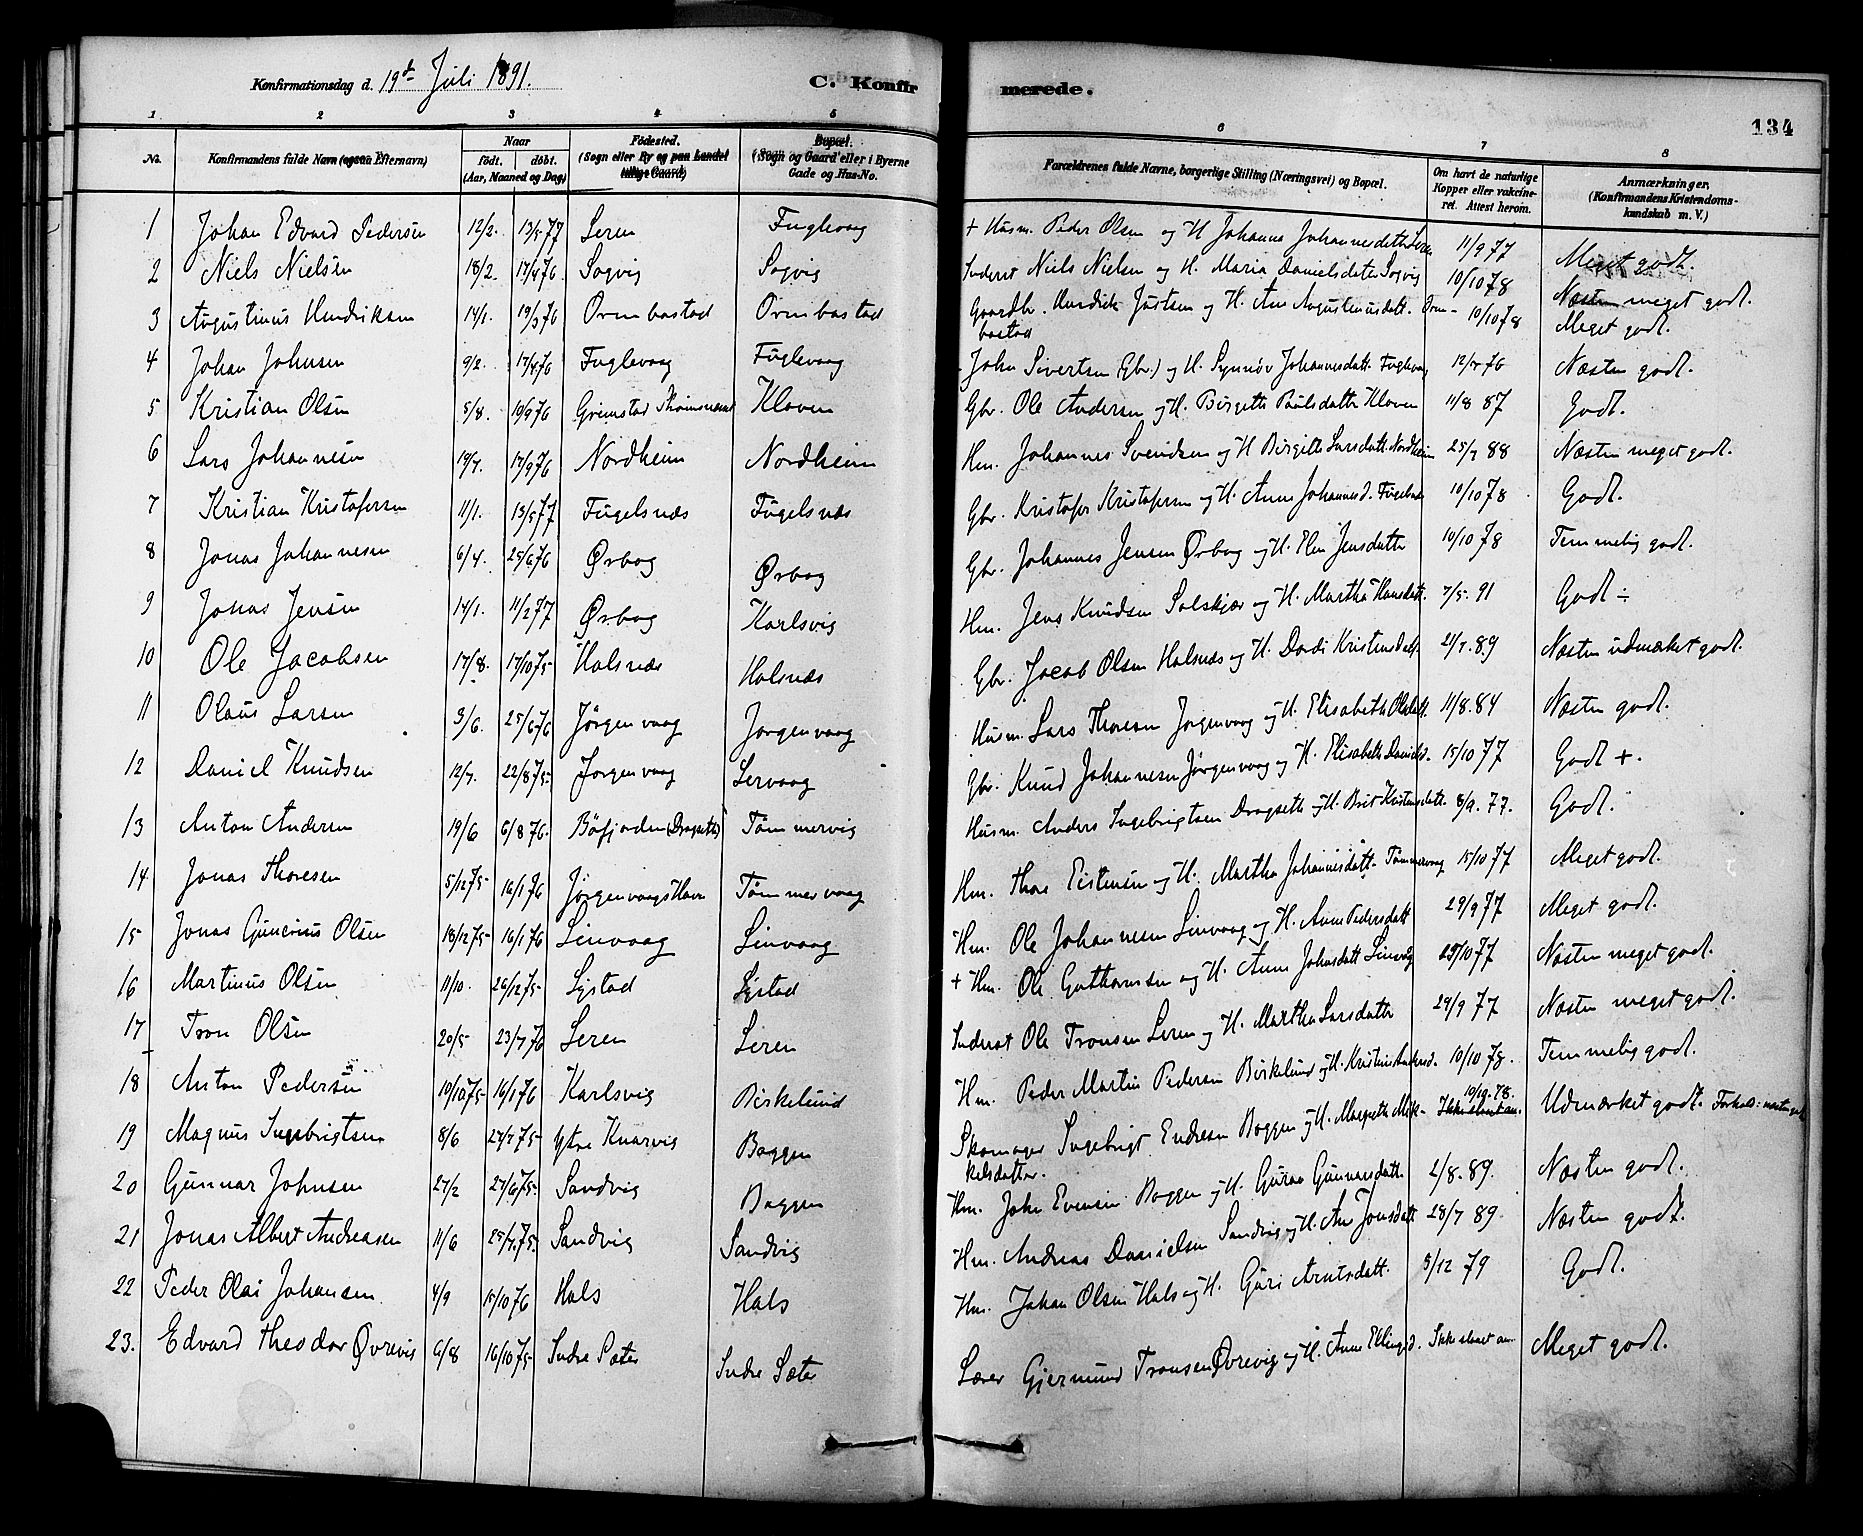 Konfirmationsdag d. 19de Juli 1891.
C. Konfirmerede.
134
1 2 3 4 5 6 7 8
No. Konfirmandens fulde Navn (ogsaa Efternavn) Naar født, døbt. (Aar, Maaned og Dag) Fødested. (Sogn eller By og paa Landet tillige Gaard) Bopæl. (Sogn og Gaard eller i Byerne Gade og Hus-No. Forældrenes fulde Navne, borgerlige Stilling (Næringsvei) og Bopæl. Om havt de naturlige Kopper eller vakcineret. Attest herom. Anmærkninger, (Konfirmandens Kristendomskundskab m. V.)
1 Johan Edvard Pedersen 12/2. 13/5 77 Leren Fuglevaag + Husm. Peder Olsen og H Johanna Johannesdatter Leren 11/9 77 Meget godt.
2 Niels Nielsen 18/2. 17/4 76. Sogvig Sogvig Inderst Niels Nielsen og H. Maria Danielsdatter Sogvig 10/10 78 Næsten meget godt.
3 Augustinus Hendriksen 14/1. 19/3 76 Ormbostad Ormbostad Gaardbr. Hendrik Justsen og H. Ane Augustinusdatt. Ormbostad 10/10 78 Meget godt.
4 Johan Johnsen 9/2. 17/4 76 Fuglevaag Fuglevaag John Sivertsen (Gbr.) og H. Synnøv Johannesdatt. Fuglevaag 12/7 76 Næsten godt.
5 Kristian Olsen 5/8. 10/9 76 Grimstad Kloven Gbr. Ole Andersen og H. Birgitte Paulsdatter Kloven 11/8 87 Godt.
6 Lars Johannesen 19/7. 17/9 76 Nordheim Nordheim Hm. Johannes Svendsen og H Birgitte Larsdatt. Nordheim 25/7 88 Næsten meget godt.
7 Kristian Kristofersen 11/1. 13/5 77 Fugelsnæs Fugelsnæs Gbr. Kristofer Kristofersen og H. Anne Johannesd. Fugelsnæs 10/10 78 Godt.
8 Jonas Johannesen 6/4. 25/6 76 Ørbog Ørbog Gbr. Johannes Jensen Ørbog og H. Elen Jensdatter 10/10 78 Temmelig godt.
9 Jonas Jensen 14/1. 11/2 77 Ørbog Karlsvig Hm. Jens Knudsen Solskjær og H. Martha Hansdatt. 7/5. 91 Godt ÷
10 Ole Jacobsen 17/8. 17/10 75 Halsnæs Halsnæs Gbr. Jacob Olsen Halsnæs og H. Dordi Kristensdatt. 21/7. 89 Næsten udmærket godt.
11 Olaus Larsen 3/6. 25/6 76 Jørgenvaag Jørgenvaag Husm. Lars Thoresen Jørgenvaag og H. Elisabeth Olsdatt. 11/8. 84 Næsten godt.
12 Daniel Knudsen 12/7. 22/8 75 Jørgenvaag Lervaag Gbr. Knud Johannesen Jørgenvaag og H. Elisabeth Danielsd. 15/10 77 Godt +.
13 Anton Andersen 19/6 6/8 76. Bøfjorden (Dragseth) Tømmervig Husm. Anders Ingebrigtsen Dragseth og H. Brit Kristensdatt. 8/9. 77. Godt.
14 Jonas Thoresen 5/12 75 16/1 76 Jørgenvaags Havn Tømmervaag Hm. Thore Eistensen og H. Martha Johannesdatt. Tømmervaag 15/10 77 Meget godt.
15 Jonas Gunerius Olsen 18/12 75 16/1 76 Linvaag Linvaag Hm. Ole Johannesen Linvaag og H. Anne Pedersdatt 29/9 77 Meget godt.
16 Martinus Olsen 11/10. 26/12 75 Lystad Lystad + Hm. Ole Guthormsen og H. Anne Johnsdatt Linvåg 25/10 77 Næsten meget godt.
17 Tron Olsen 20/5 23/7 76 Leren Leren Inderst Ole Tronsen Leren og H. Martha Larsdatter 29/9 77 Næsten meget godt.
18 Anton Pedersen 10/10 75 16/1 76 Karlsvig Birkelund Hm. Peder Martin Pedersen Birkelund og H. Kristine Andersd. 10/10 78. Temmelig godt.
19 Magnus Ingebrigtsen 8/6 24/7 75 Ytre Knarvig Boggen Skomager Ingebrigt Endresen Boggen og H. Margrethe Mikkelsdatter. 10/10. 78. Udmærket godt.
20 Gunnar Johnsen 27/2 27/6 75 Sandvig Boggen Hm. John Evensen Boggen og H. Guroe Gunnarsdatt. 2/8. 89. Næsten godt.
21 Jonas Albert Andreasen 11/6 25/7. 75. Sandvig Sandvig Hm. Andreas Danielsen Sandvig og H. Ane Jonsdatt 28/7 89. Næsten godt.
22 Peder Olai Johansen 4/9 15/10 76 Hals Hals Hm. Johan Olsen Hals og H. Guri Arntsdatt. 5/12 79 Godt.
23. Edvard Theodor Øvrevig 6/8 16/10 75 Indre Sæter Indre Sæter Lærer Gjermund Tronsen Øvrevig og H. Anne Ellingsd. Ikke Meget godt.